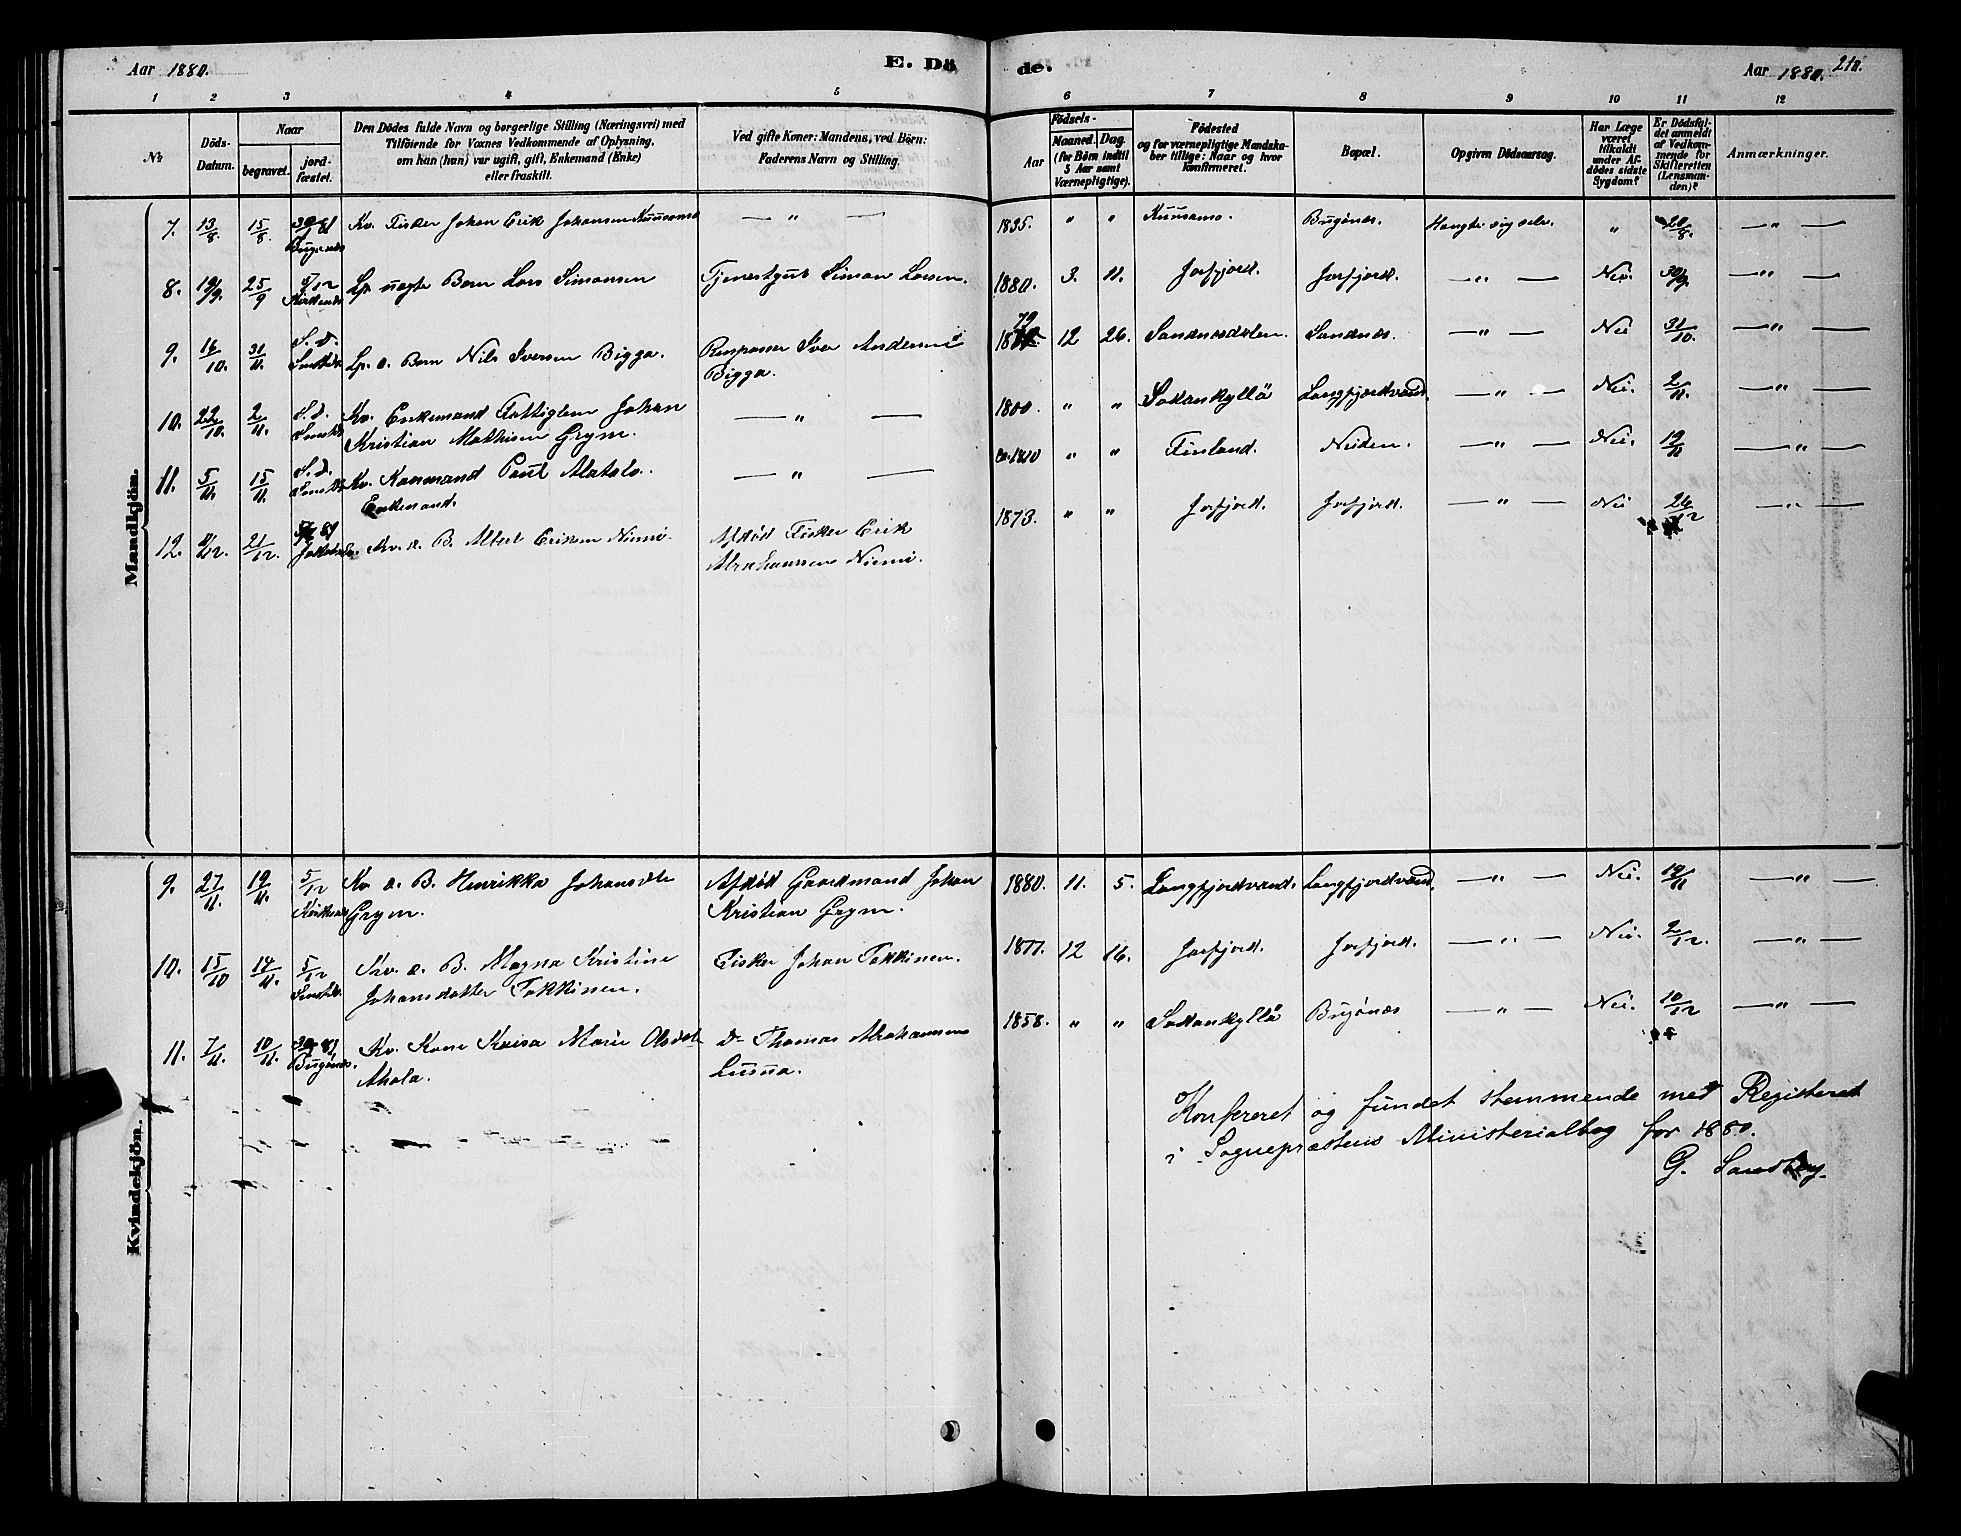 Aar 1880.
E. Dö
de.
Aar 1880.
210.
1 2 3 4 5 6 7 8 9 10 11 12
№
Döds-
Datum.
Naar
begravet.
jord-
fæstet.
Den Dödes fulde Navn og borgerlige Stilling (Næringsvei) med
Tilföiende for Voxnes Vedkommende af Oplysning,
om han (hun) var ugift, gift, Enkemand (Enke)
eller fraskilt.
Ved gifte Koner: Mandens, ved Börn:
Faderens Navn og Stilling.
Födsels-
Aar
Maaned. Dag.
(for Börn indtil
5 Aar samt
Værnepligtige).
Födested
og for værnepligtige Mandska-
ber tillige: Naar og hvor
konfirmeret.
Bopæl.
Opgiven Dödsaarsag.
Har Læge
været
tilkaldt
under Af-
dödes sidste
Sygdom?
Er Dödsfal-
det anmeldt
af Vedkom-
mende for
Skifteretten
(Lensman-
den)?
Anmærkninger.
Mandkjön.
7. 13/8. 15/8. Bugönes Kv. Fisker Johan Erik Johansen Kuusamo — „ — 1835. „ „ Kuusamo. Bugönes. Hængte sig selv. „ 20/8. — „ —
8. 19/9. 25/9 5/12 Kirkenes Lp. uægte Barn Lars Simonsen Tjenestgut Simon Larsen. 1880. 3. 11. Jarfjord. Jarfjord. — „ — Nei. 30/9. — „ —
9. 16/10. 31/11. S. d. Lp. æ. Barn Nils Iversen Bigga. Iver Andersen
Bigga. 1879 12 26. Sandnesdalen. Sandnes. — „ — Nei 31/10. — „ —
10. 22/10. 2/11. S. d. Kv. Enkemand Fattiglem Johan
Kristian Mathisen Grym. — „ — 1800. „ „ Sodankyllä Langfjordvand. — „ — Nei. 2/11. — „ —
11. 5/11. 15/11. S. d. Kv. Paul Alatalo.
Enkemand. — „ — ca. 1810 „ „ Finland. Neiden. — „ — Nei. 19/11 — „ —
12. 21/12. Kv. æ. B. Albert Eriksen Niemi. Afdöd Fisker Erik
Abrahamsen Niemi. 1873. „ „ Jarfjord. Jarfjord. — „ — Nei 26/12 — „ —
Kvindekjön.
9. 27/11. 19/11. 5/12 Kirkenes Kv. æ. B. Henrikka Johansdtr
Grym. Afdöd Gaardmand Johan
Kristian Grym. 1880. 11. 5. Langfjordvand. Langfjordvand. — „ — Nei. 19/11 — „ —
10. 15/10 14/11. 5/12 Kv. æ. B. Magna Kristine
Johansdatter Takkinen. Fisker Johan Takkinen. 1877. 12 16. Jarfjord. Jarfjord. — „ — Nei. 2/12. — „ —
11. 7/11. 10/11. Bugönes. Kv. Kone Kaisa Marie Olsdtr
Ahola. Do Thomas Abrahamsen
Lusua. 1858. „ „ Sodankyllä Bugönes — „ — Nei. 10/12 — „ —
Konfereret og fundet stemmende med Registeret
i Sognepræstens Ministerialbog for 1880.
G. Sandberg.